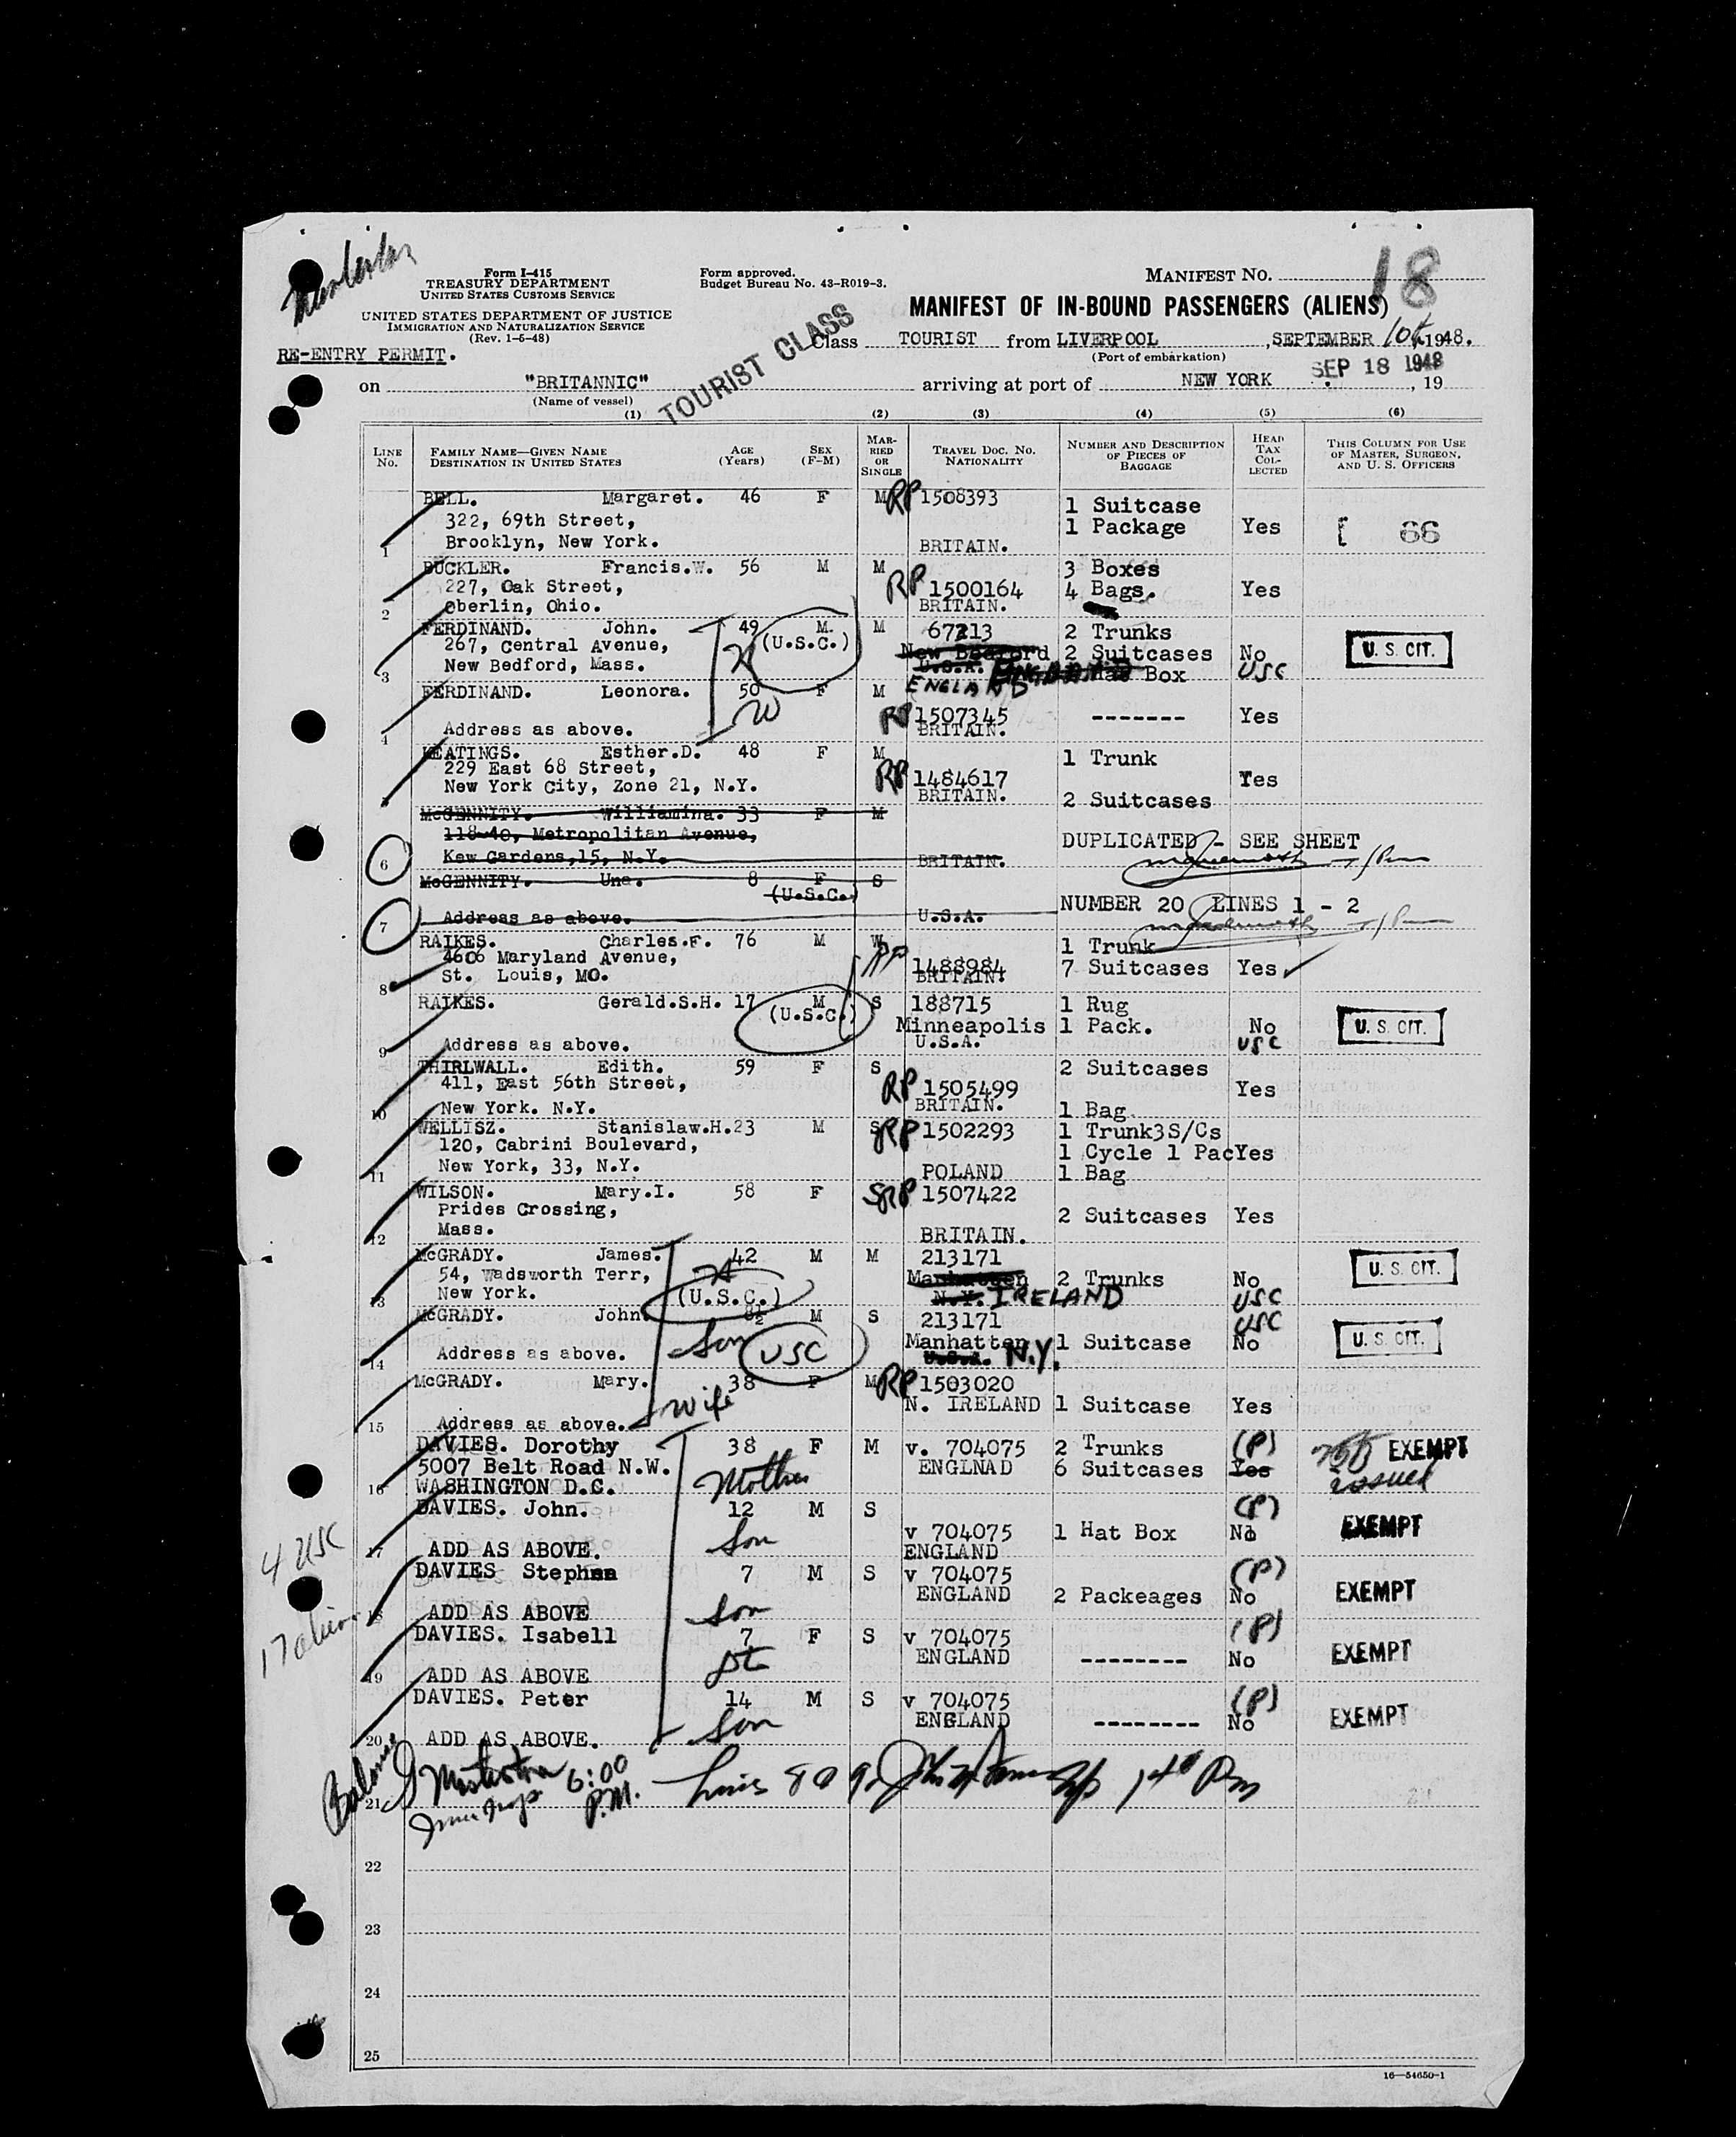 Form I-415
TREASURY DEPARTMENT
UNITED STATES CUSTOMS SERVICE
UNITED STATES DEPARTMENT OF JUSTICE
IMMIGRATION AND NATURALIZATION SERVICE
(Rev. 1-5-48)
RE-ENTRY PERMIT.
Form approved.
Budget Bureau No. 43-R019-3.
MANIFEST NO. 18
MANIFEST OF IN-BOUND PASSENGERS (ALIENS)
TOURIST CLASS
Class TOURIST from LIVERPOOL, SEPTEMBER 10th, 1948.
(Port of embarkation)
on "BRITANNIC" arriving at port of NEW YORK SEP 18 1948, 19
(Name of vessel)
(1) (2) (3) (4) (5) (6)
LINE NO. FAMILY NAME—GIVEN NAME DESTINATION IN UNITED STATES AGE (Years) SEX (F-M) MARRIED OR SINGLE TRAVEL DOC. NO. NATIONALITY NUMBER AND DESCRIPTION OF PIECES OF BAGGAGE HEAD TAX COLLECTED THIS COLUMN FOR USE OF MASTER, SURGEON, AND U. S. OFFICERS
BELL. Margaret. 46 F M RP 1508393 1 Suitcase
322, 69th Street, 1 Package Yes 66
1 Brooklyn, New York. BRITAIN.
BUCKLER. Francis.W. 56 M M 3 Boxes
227, Oak Street, RP 1500164 4 Bags. Yes
2 Oberlin, Ohio. BRITAIN.
FERDINAND. John. 49 M. M 67213 2 Trunks
267, Central Avenue, H (U.S.C.) New Bedford 2 Suitcases No U. S. CIT.
3 New Bedford, Mass. U.S.A. Hat Box USC
FERDINAND. Leonora. 50 F M ENGLAND
W RP 1507345 ------- Yes
4 Address as above. BRITAIN.
KEATINGS. Esther.D. 48 F M 1 Trunk
229 East 68 Street, RP 1484617 Yes
5 New York City, Zone 21, N.Y. BRITAIN. 2 Suitcases
McGENNITY. Williamina. 33 F M
118-40, Metropolitan Avenue, DUPLICATED - SEE SHEET
6 Kew Gardens,15, N.Y. BRITAIN.
McGENNITY. Una. 8 F S
(U.S.C.)
7 Address as above. U.S.A. NUMBER 20 LINES 1 - 2
RAIKES. Charles.F. 76 M W 1 Trunk
4606 Maryland Avenue, RP 1488984 7 Suitcases Yes
8 St. Louis, MO. BRITAIN.
RAIKES. Gerald.S.H. 17 M S 188715 1 Rug
(U.S.C.) Minneapolis 1 Pack. No U. S. CIT.
9 Address as above. U.S.A. USC
THIRLWALL. Edith. 59 F S 2 Suitcases
411, East 56th Street, RP 1505499 Yes
10 New York. N.Y. BRITAIN. 1 Bag
WELLISZ. Stanislaw.H.23 M S RP 1502293 1 Trunk3S/Cs
120, Cabrini Boulevard, 1 Cycle 1 PacYes
11 New York, 33, N.Y. POLAND 1 Bag
WILSON. Mary.I. 58 F S RP 1507422
Prides Crossing, 2 Suitcases Yes
12 Mass. BRITAIN.
McGRADY. James. 42 M M 213171
54, Wadsworth Terr, H Manhatten 2 Trunks No U. S. CIT.
13 New York. (U.S.C.) N.Y. IRELAND USC
McGRADY. John. 8½ M S 213171 USC
14 Address as above. Son USC Manhatten 1 Suitcase No U. S. CIT.
U.S.A. N.Y.
McGRADY. Mary. 38 F M RP 1503020
Wife N. IRELAND 1 Suitcase Yes
15 Address as above.
DAVIES. Dorothy 38 F M v. 704075 2 Trunks (P) not EXEMPT
5007 Belt Road N.W. Mother ENGLNAD 6 Suitcases Yes issued
16 WASHINGTON D.C.
DAVIES. John. 12 M S (P)
Son v 704075 1 Hat Box No EXEMPT
17 ADD AS ABOVE. ENGLAND
DAVIES Stephen 7 M S v 704075 (P)
ENGLAND 2 Packeages No EXEMPT
18 ADD AS ABOVE Son
DAVIES. Isabell 7 F S v 704075 (P)
ENGLAND -------- No EXEMPT
19 ADD AS ABOVE
DAVIES. Peter 14 M S v 704075 (P)
ENGLAND -------- No EXEMPT
20 ADD AS ABOVE. Son
4 USC
17 aliens
21 Balance 6:00 P.M.
22
23
24
25
16—54650-1